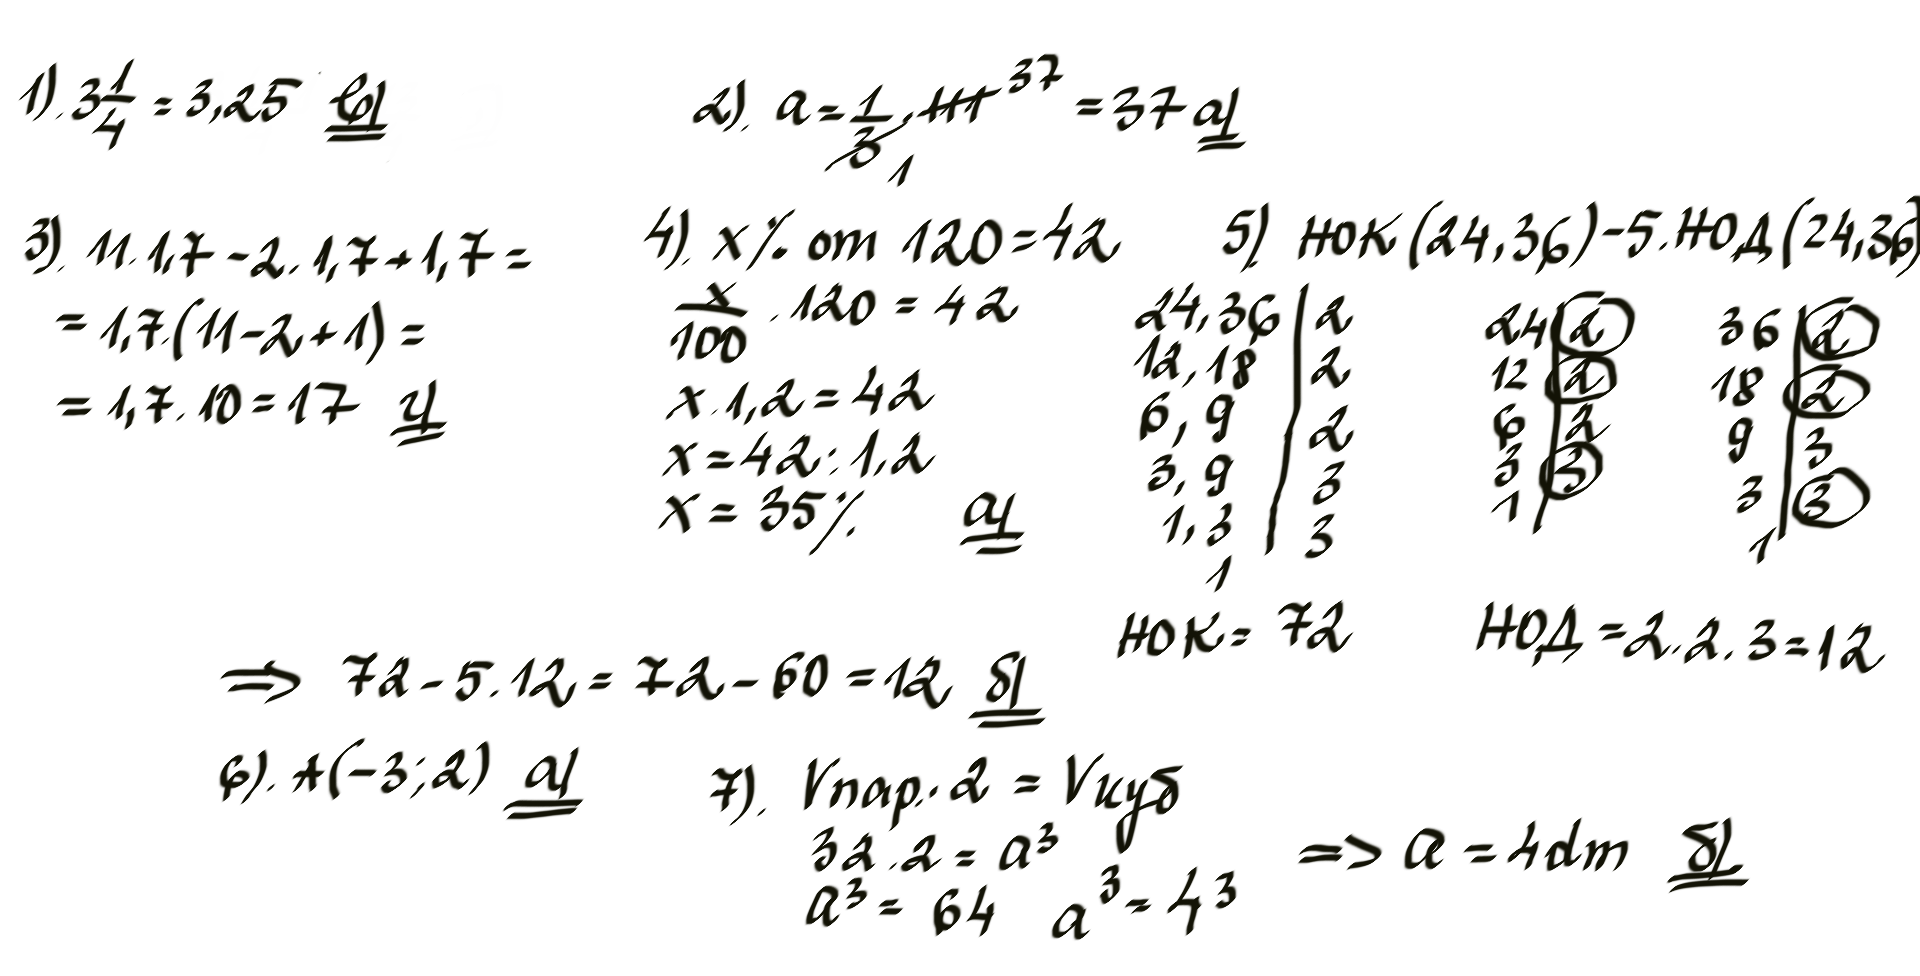 1). 3 1/4 = 3,25 в)
2). a = 1/3 . 111 37 = 37 а)
1
3). 11.1,7 - 2.1,7 + 1,7 =
= 1,7.(11-2+1) =
= 1,7.10 = 17 г)
4). x% от 120 = 42
x/100 . 120 = 42
x.1,2 = 42
x = 42:1,2
x = 35% а)
5) НОК(24,36) - 5.НОД(24,36)
24,36 | 2
12,18 | 2
6,9 | 2
3,9 | 3
1,3 | 3
1
НОК = 72
24 | 2
12 | 2
6 | 2
3 | 3
1
36 | 2
18 | 2
9 | 3
3 | 3
1
НОД = 2.2.3 = 12
=> 72 - 5.12 = 72 - 60 = 12 б)
6). A(-3;2) а)
7). Vпар. . 2 = Vкуб
32.2 = a³
a³ = 64 a³ = 4³ => a = 4dm б)